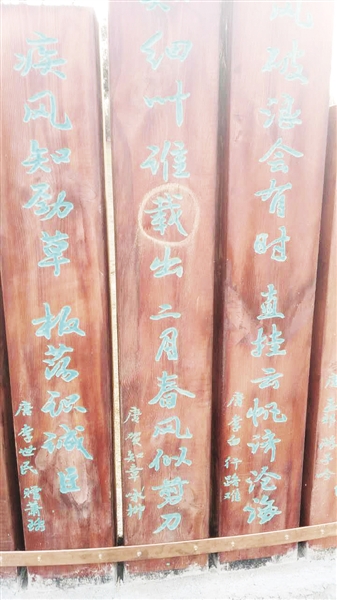 风破浪会有时 直挂云帆济沧海
唐 李白 行路难
细叶谁载出 二月春风似剪刀
唐 贺知章 咏柳
疾风知劲草 板荡识诚臣
唐 李世民 赠萧瑀